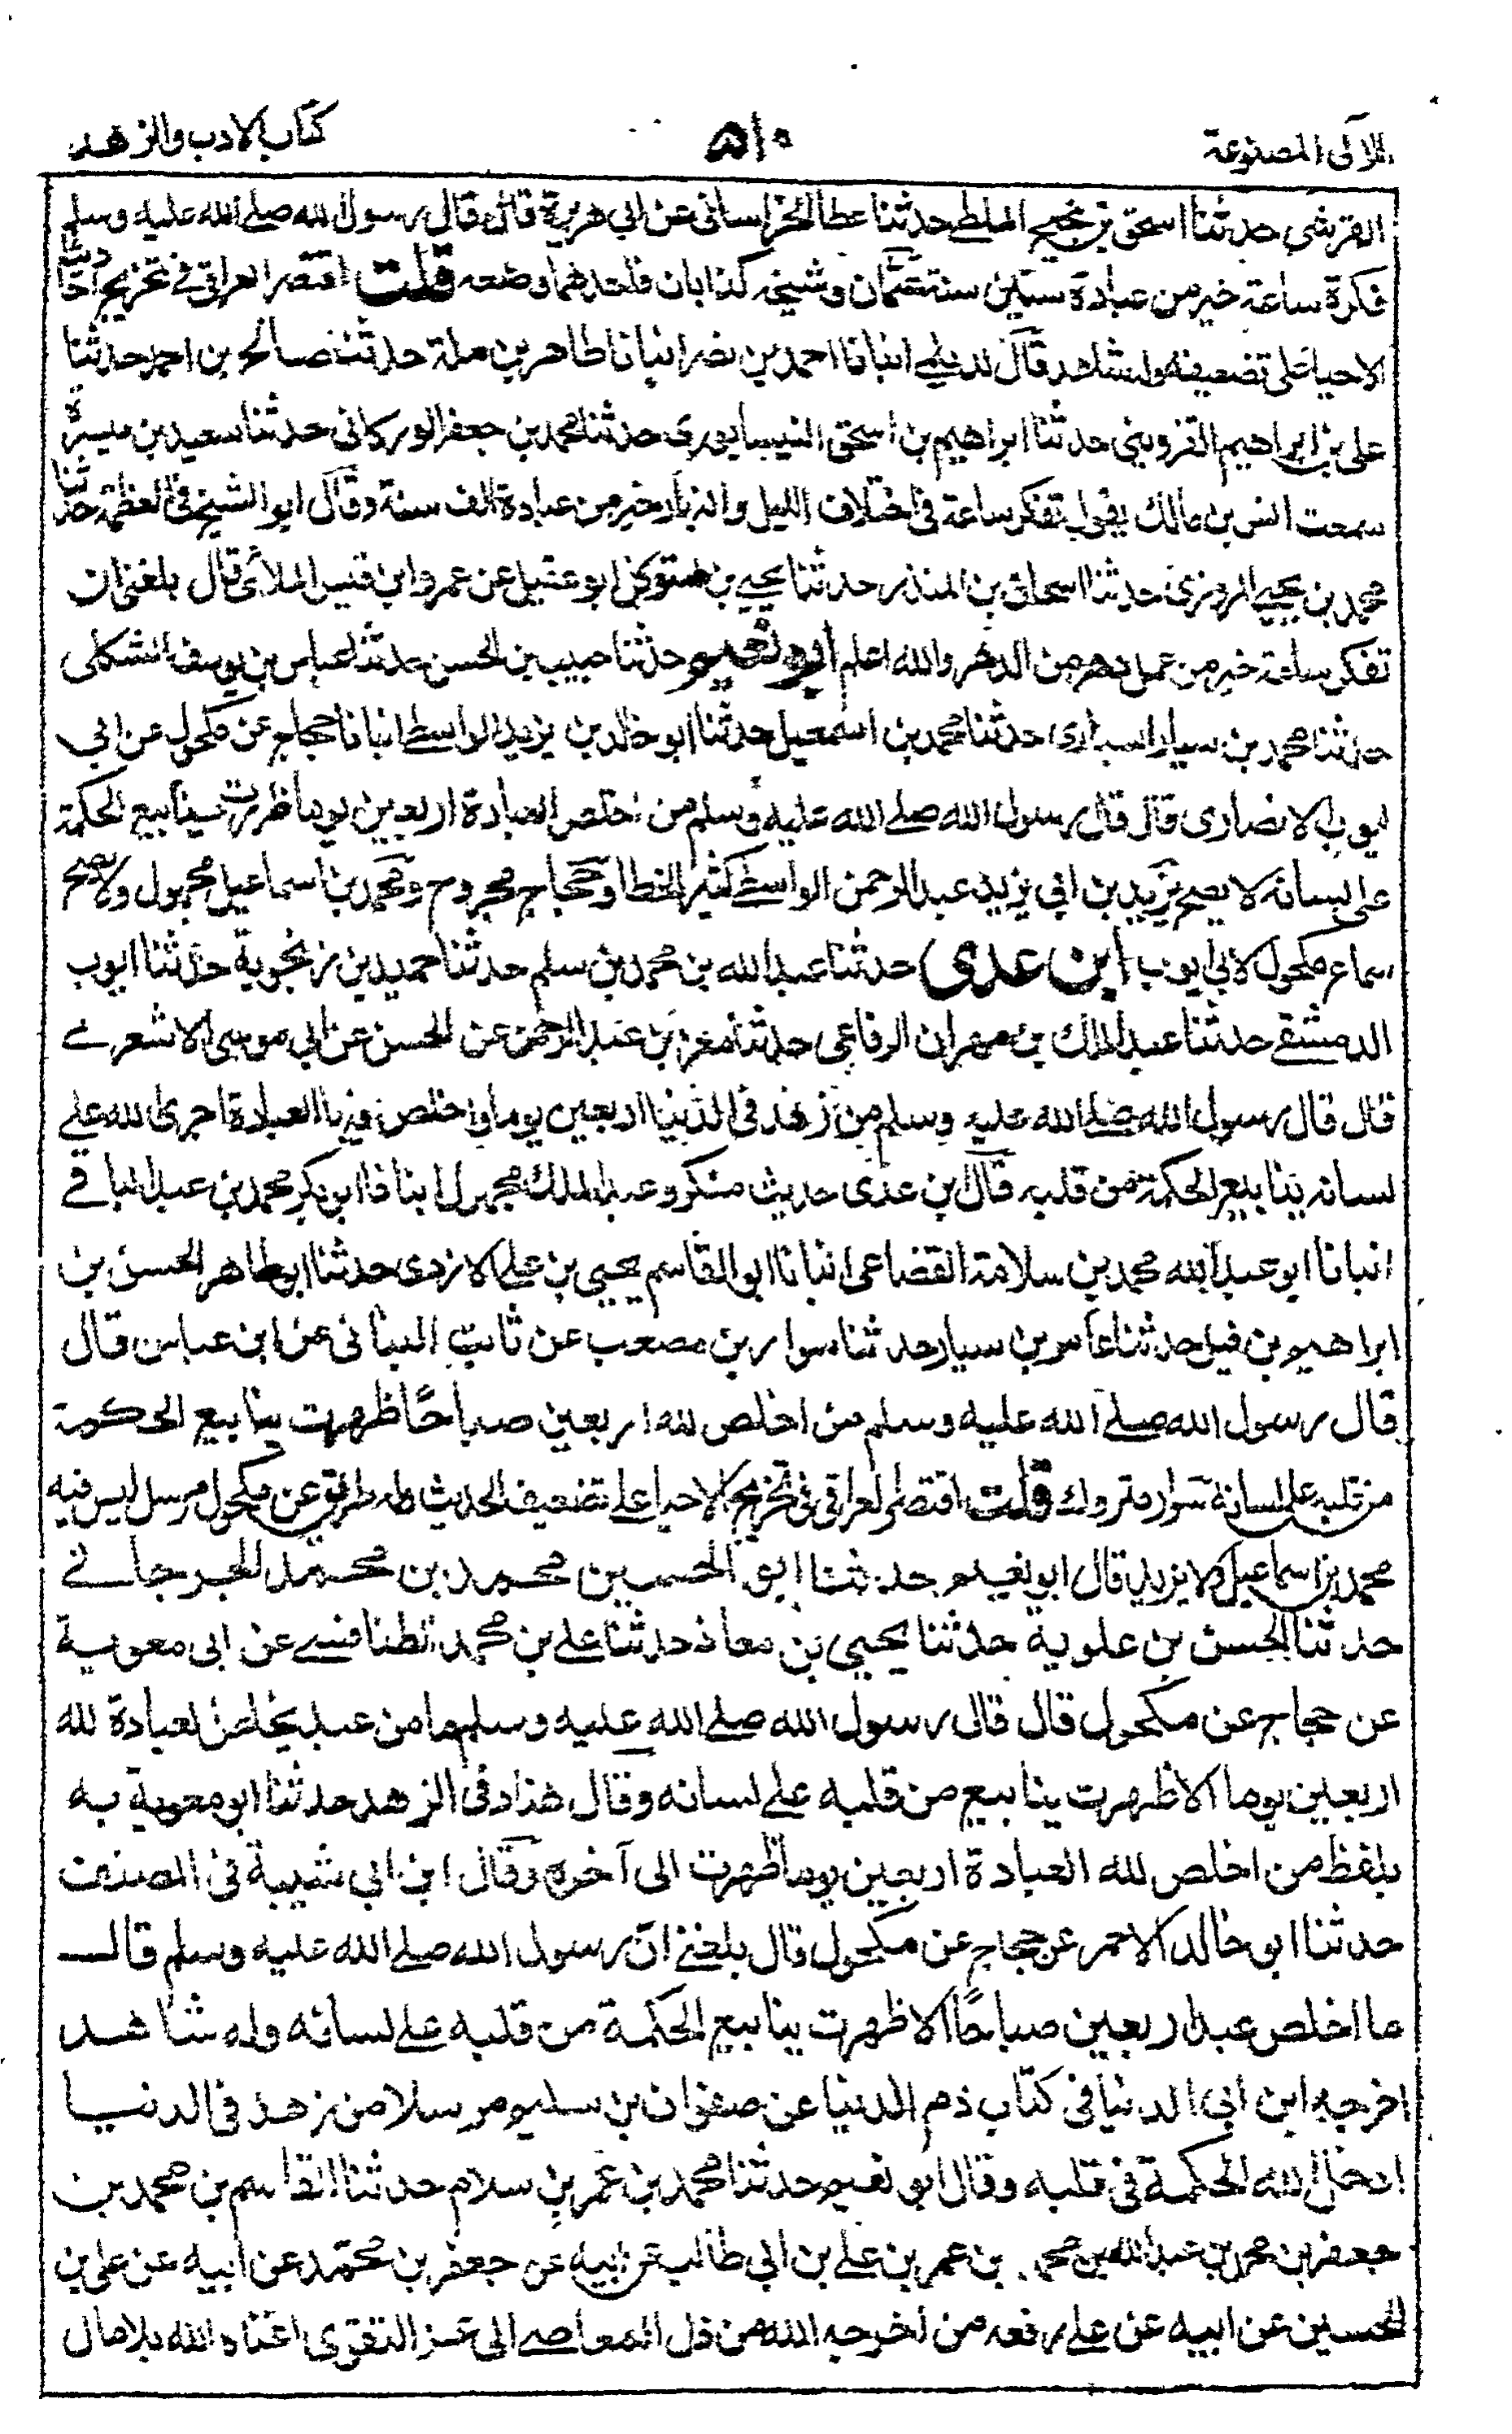 اللآلى المصنوعة
٥١٠
كتاب الادب والزهد
القرشي حدثنا اسحق بن نجيح الملطي حدثنا عطا الخراسانى عن ابي هريرة قال قال رسول الله صلى الله عليه وسلم
فكرة ساعة خير من عبادة ستين سنة عثمان وشيخه كذابان فاحدهما وضعه قلت اقتصر العراقى فى تخريج احاديث
الاحيا على تضعيفه وله شاهد قال الديلمي انبانا احمد بن نصر انبانا طاهر بن ملة حدثنا صالح بن احمد حدثنا
على بن ابراهيم القزوينى حدثنا ابراهيم بن اسحق النيسابورى حدثنا محمد بن جعفر الوركانى حدثنا سعيد بن ميسرة
سمعت انس بن مالك يقول تفكر ساعة فى اختلاف الليل والنهار خير من عبادة الف سنة وقال ابو الشيخ فى العظمة حدثنا
محمد بن يحيى المروزى حدثنا اسحاق بن المنذر حدثنا يحيى بن المتوكل ابو عقيل عن عمرو ابن قيس الملائى قال بلغنى ان
تفكر ساعة خير من عمل دهر من الدهر والله اعلم ابو نعيم حدثنا حبيب بن الحسن حدثنا العباس بن يوسف الشكلى
حدثنا محمد بن سيار السيارى حدثنا محمد بن اسمعيل حدثنا ابو خالد بن يزيد الواسطى انبانا حجاج عن مكحول عن ابي
ايوب الانصارى قال قال رسول الله صلى الله عليه وسلم من اخلص العبادة اربعين يوما ظهرت ينابيع الحكمة
على لسانه لا يصح يزيد بن ابى يزيد عبد الرحمن الواسطى كثير الخطا وحجاج مجروح ومحمد بن اسماعيل مجهول ولا يصح
سماع مكحول لابى ايوب (ابن عدى) حدثنا عبد الله بن محمد بن سلم حدثنا حميد بن زنجوية حدثنا ايوب
الدمشقى حدثنا عبد الملك بن مهران الرفاعى حدثنا معن بن عبد الرحمن عن الحسن عن ابى موسى الاشعرى
قال قال رسول الله صلى الله عليه وسلم من زهد فى الدنيا اربعين يوما واخلص فيها العبادة اجرى الله على
لسانه ينابيع الحكمة من قلبه قال ابن عدى حديث منكر وعبد الملك مجهول انبانا ابو بكر محمد بن عبد الباقى
انبانا ابو عبد الله محمد بن سلامة القضاعى انبانا ابو القاسم يحيى بن على الازدى حدثنا ابو طاهر الحسن بن
ابراهيم بن فيل حدثنا عامر بن سيار حدثنا سوار بن مصعب عن ثابت البنانى عن ابن عباس قال
قال رسول الله صلى الله عليه وسلم من اخلص لله اربعين صباحًا ظهرت ينابيع الحكمة
من قلبه على لسانه سوار متروك قلت اقتصر العراقى فى تخريج الاحيا على تضعيف الحديث وله طريق عن مكحول مرسل ليس فيه
محمد بن اسماعيل ولا يزيد قال ابو نعيم حدثنا ابو الحسين محمد بن محمد الجرجانى
حدثنا الحسن بن علوية حدثنا يحيى بن معاذ حدثنا على بن محمد الطنافسى عن ابى معوية
عن حجاج عن مكحول قال قال رسول الله صلى الله عليه وسلم ما من عبد يخلص العبادة لله
اربعين يوما الا ظهرت ينابيع من قلبه على لسانه وقال هناد فى الزهد حدثنا ابو معوية به
بلفظ من اخلص لله العبادة اربعين يوما ظهرت الى آخره وقال ابن ابى شيبة فى المصنف
حدثنا ابو خالد الاحمر عن حجاج عن مكحول قال بلغنى انّ رسول الله صلى الله عليه وسلم قال
ما اخلص عبد اربعين صباحًا الا ظهرت ينابيع الحكمة من قلبه على لسانه وله شاهد
اخرجه ابن ابى الدنيا فى كتاب ذم الدنيا عن صفوان بن سليم مرسلا من زهد فى الدنيا
ادخل الله الحكمة فى قلبه وقال ابو نعيم حدثنا محمد بن عمر بن سلام حدثنا القاسم بن محمد بن
جعفر بن محمد بن عبد الله بن محمد بن عمر بن على بن ابى طالب عن ابيه عن جعفر بن محمد عن ابيه عن على بن
الحسين عن ابيه عن على رفعه من اخرجه الله من ذل المعاصى الى عز التقوى اغناه الله بلا مال